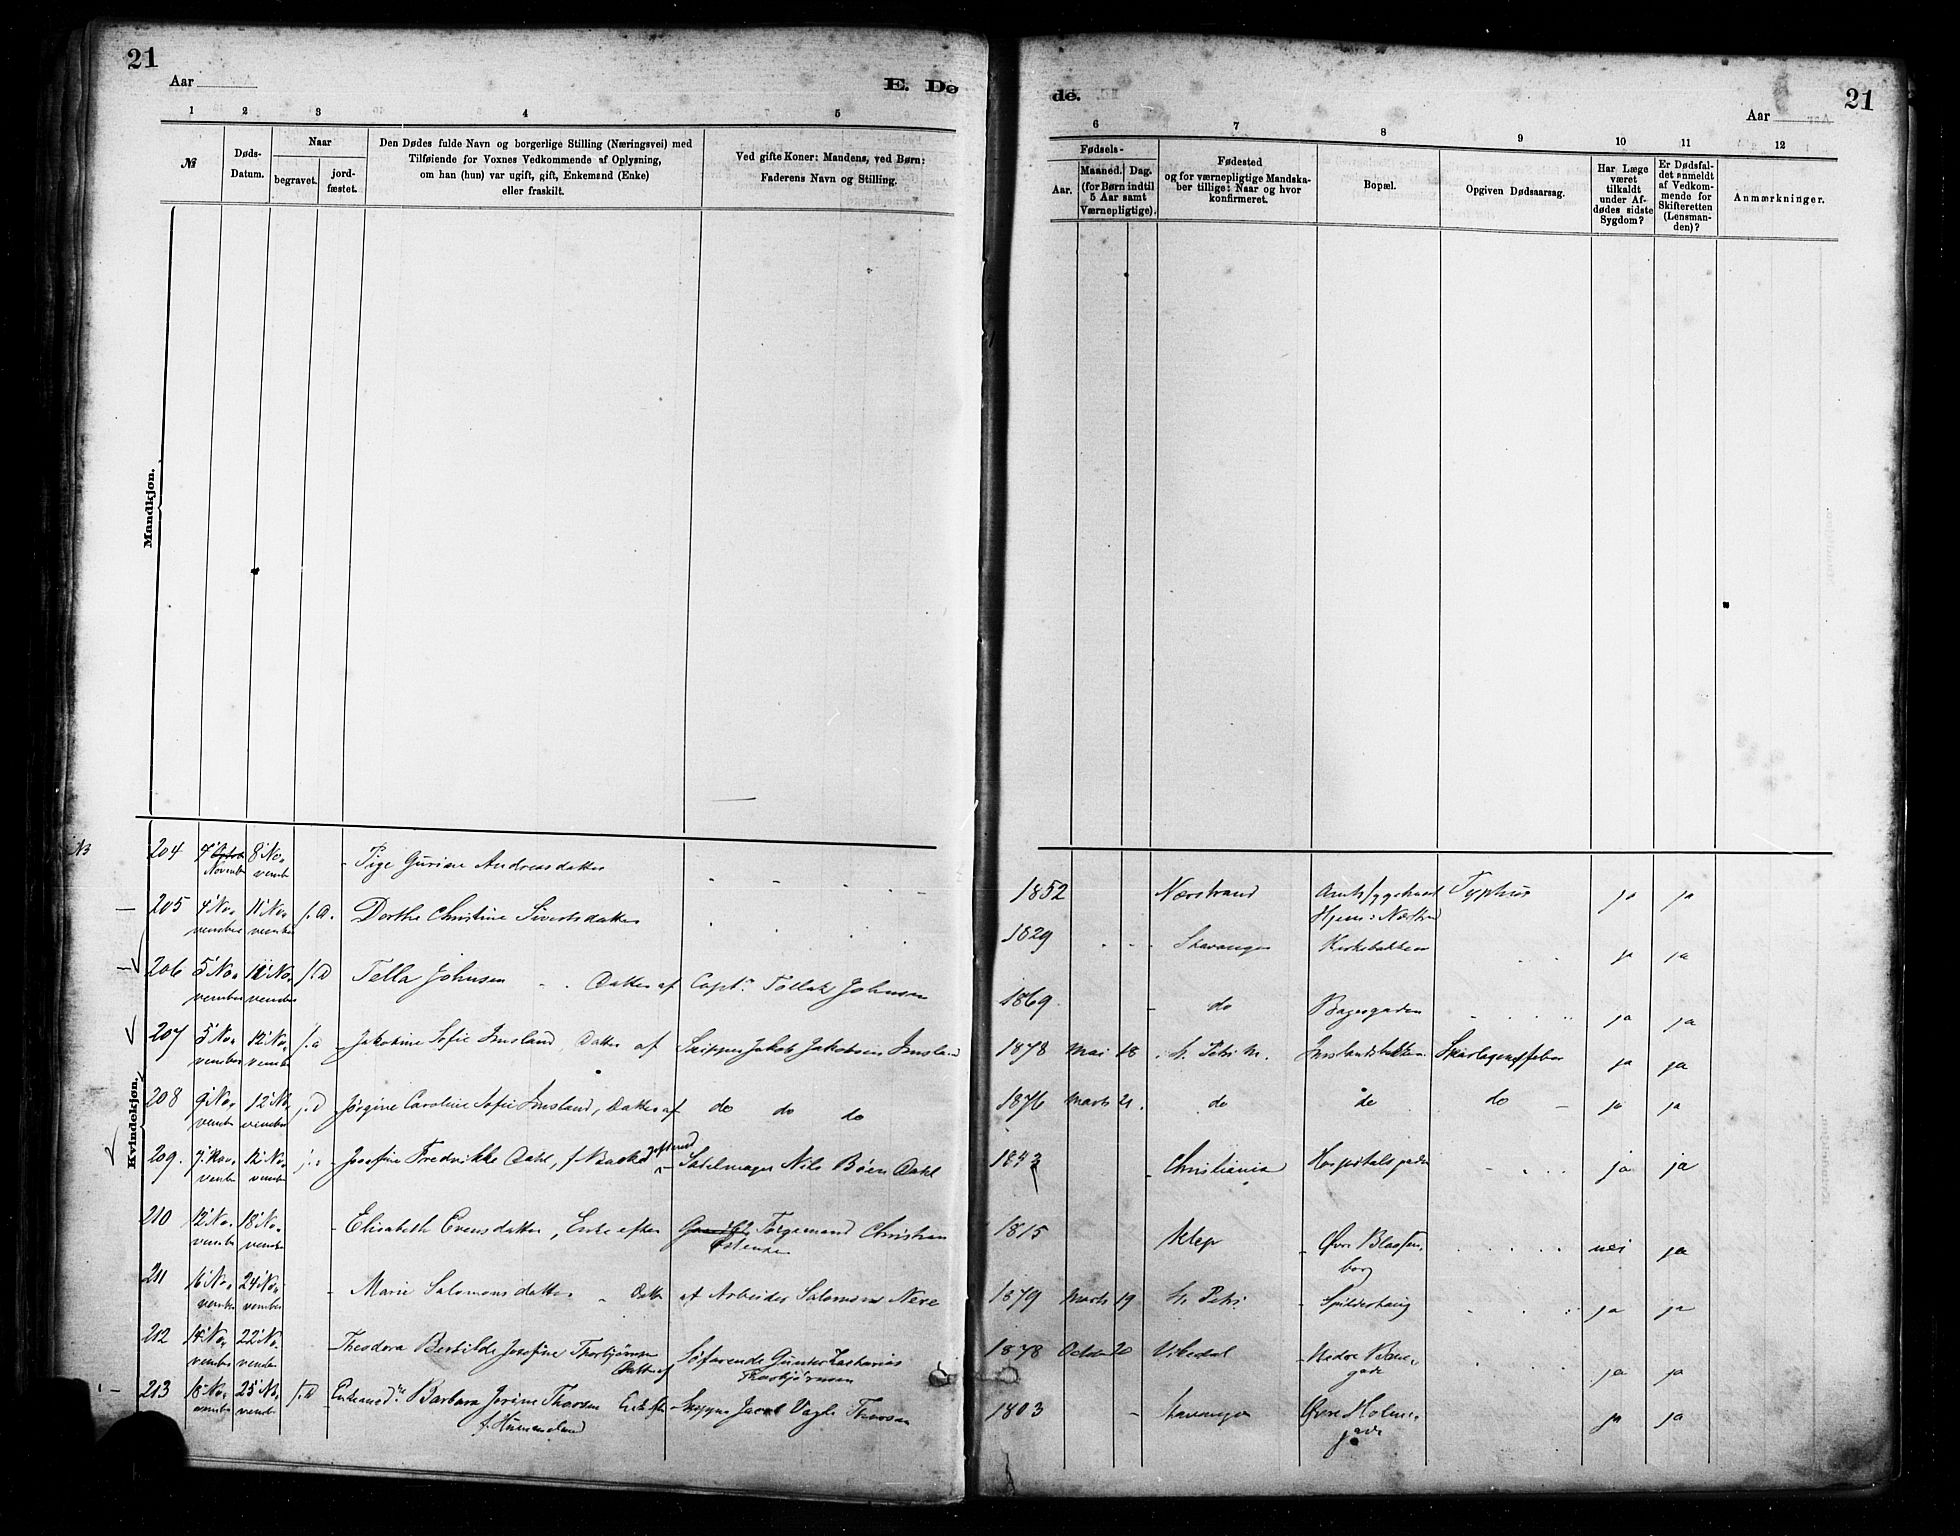 21
Aar
E. Dø
1 2 3 4 5
№
Døds-
Datum.
Naar
begravet.
jord-
fæstet.
Den Dødes fulde Navn og borgerlige Stilling (Næringsvei) med
Tilføiende for Voxnes Vedkommende af Oplysning,
om han (hun) var ugift, gift, Enkemand (Enke)
eller fraskilt.
Ved gifte Koner: Mandens, ved Børn:
Faderens Navn og Stilling.
Mandkjøn.
Kvindekjøn.
204 4' November 8' November Pige Guriane Andreasdatter
205 4' November 11' November Dorthe Christine Sivertsdatter
206 5' November November Tella Johnsen Datter af Capt. Tollak Johnsen
207 5' November 12' November Jakobine Sofie Imsland, Datter af Skipper Jakob Jakobsen Imsland
208 9' November 12' November Jørgine Caroline Sofie Imsland, Datter af do do do
209. 7' November 12' November Josefine Fredrikke Dahl, f. Sadelmager Nils Dahl
210 12' November 18' November Elisabeth Evensdatter, Enke efter Torgemand Christian
Østensen
211 16' November 24' November Marie Salomonsdatter Datter af Arbeider Salomon Nese
212 November 22' November Theodora Bertilde Josefine Thorbjørnsen
Datter af Søfarende Gunder Zacharias
Thorbjørnsen
213 18' November 25' November Barbara Jorine Thorsen Enke efter Skipper Jacob Vagle Thorsen
21
de.
Aar
6 7 8 9 10 11 12
Fødsels-
Aar.
Maaned.
Dag.
(for Børn indtil
5 Aar samt
Værnepligtige).
Fødested
og for værnepligtige Mandska-
ber tillige: Naar og hvor
konfirmeret.
Bopæl.
Opgiven Dødsaarsag.
Har Læge
været
tilkaldt
under Af-
dødes sidste
Sygdom?
Er Dødsfal-
det anmeldt
af Vedkom-
mende for
Skifteretten
(Lensman-
den)?
Anmærkninger.
1852 Nærstrand Amtssygehuset Typhus ja ja
1829 Stavanger Kirkebakken ja ja
1869. do Bagergaden ja ja
1878 Mai 18 St. Petri M. Imslandsbakken Skarlagensfeber ja ja
1876 Marts 21. do do do ja ja
1843 Christiania Hospitalsgaden ja ja
1815 Klep Øvre Blaasen
borg nei ja
1879 Marts 19 St. Petri Spilderhaug ja ja
1878 October 20 Vikedal Nedre
gade ja ja
1803 Stavanger Øvre Holme
gade ja ja